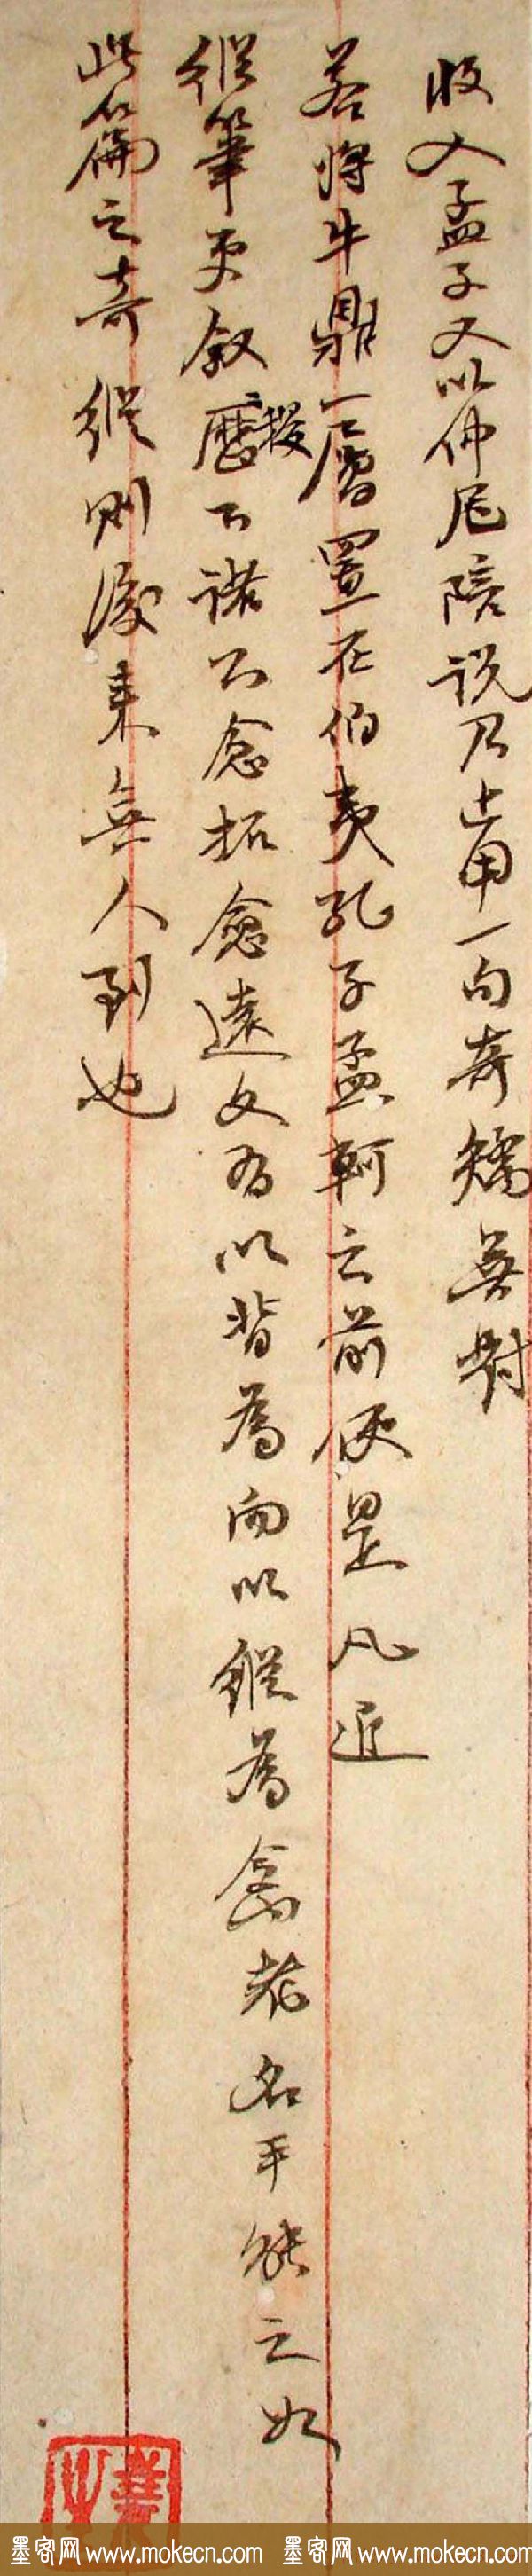 收入孟子又以仲尼陪说乃止用一句奇矯無對
若將牛鼎一層置在伯夷孔子孟軻之前便是凡近
縱筆更叙歷二援不諾不愈拓愈遠文有以背為向以縱為禽者名手能之如
此篇之奇縱則後来無人到也
墨客网 www.mokecn.com 墨客网 www.mokecn.com